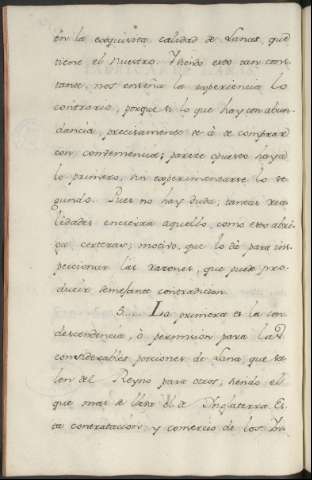 en la exquisita calidad de Lanas, que
tiene el Nuestro. Siendo esto tan cons-
tante, nos enseña la experiencia lo
contrario, porque si lo que hay con abun-
dancia, precisamente se à de comprar
con conveniencia; parece opuesto haya
lo primero, sin experimentarse lo se-
gundo. Pues no hay duda, tantas rea-
lidades encierra aquello, como esto abri-
ga certezas; motivo, que lo dà para ins-
peccionar las razones, que puede pro-
ducir semejante contradiccion.
5... La primera es la con-
descendencia, ò permision para las
considerables porciones de Lana, que sa-
len del Reyno para otros, siendo el
que mas se lleva el de Inglaterra. Es-
ta contratacion y comercio de los In-